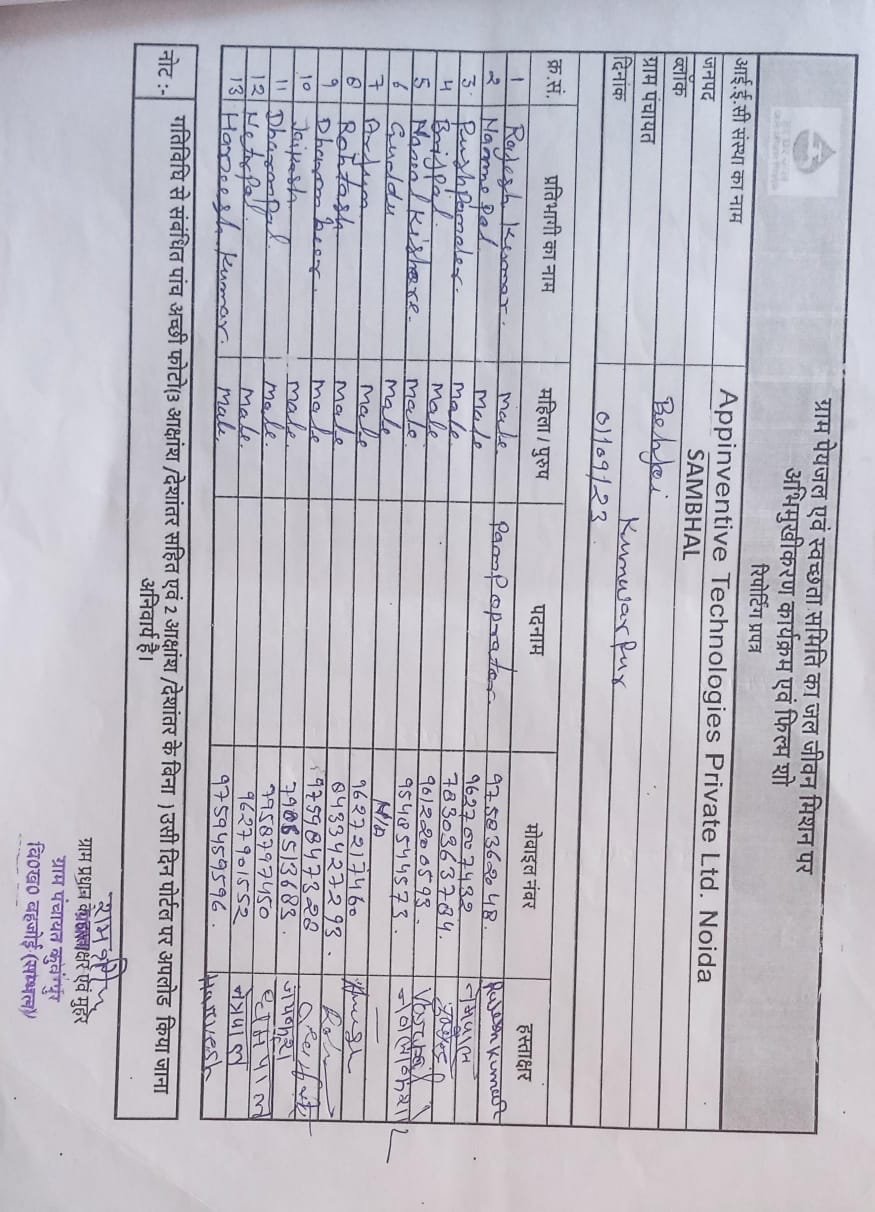 ग्राम पेयजल एवं स्वच्छता समिति का जल जीवन मिशन पर
अभिमुखीकरण कार्यक्रम एवं फिल्म शो
रिपोर्टिंग प्रपत्र
आई.ई.सी संस्था का नाम Appinventive Technologies Private Ltd. Noida
जनपद SAMBHAL
ब्लॉक Behjoi
ग्राम पंचायत Kunwarpur
दिनांक 01/09/23
क्र.सं. प्रतिभागी का नाम महिला / पुरुष पदनाम मोबाइल नंबर हस्ताक्षर
1 Rajesh Kumar. male Pampopprator 9758362048. Rajesh Kumar
2 Nannepal male 9627007432 नन्नेपाल
3. Pushpander. male 7830363784.
4 Bajpal. male 9612200593.
5 Nawal Kishore. male. 9548544573. नवलकिशोर
6 Guddu male N/A —
7 Arjun male 9627217460
8 Rohtash male 8433427293.
9 Dharambeer. male 9759847328
10 Jaikash male. 7906513683. जयकाश
11 Dharampal male. 7958797450 धर्मपाल
12 Netrpal. male. 9627901552 नेत्रपाल
13 Hareesh Kumar. male. 9759459596. Hareesh
नोट :- गतिविधि से संबंधित पांच अच्छी फोटो(3 आक्षांश /देशांतर सहित एवं 2 आक्षांश /देशांतर के विना ) उसी दिन पोर्टल पर अपलोड किया जाना
अनिवार्य है।
ग्राम प्रधान के हस्ताक्षर एवं मुहर
ग्राम पंचायत कुवंरपुर
वि०ख० बहजोई (सम्भल)